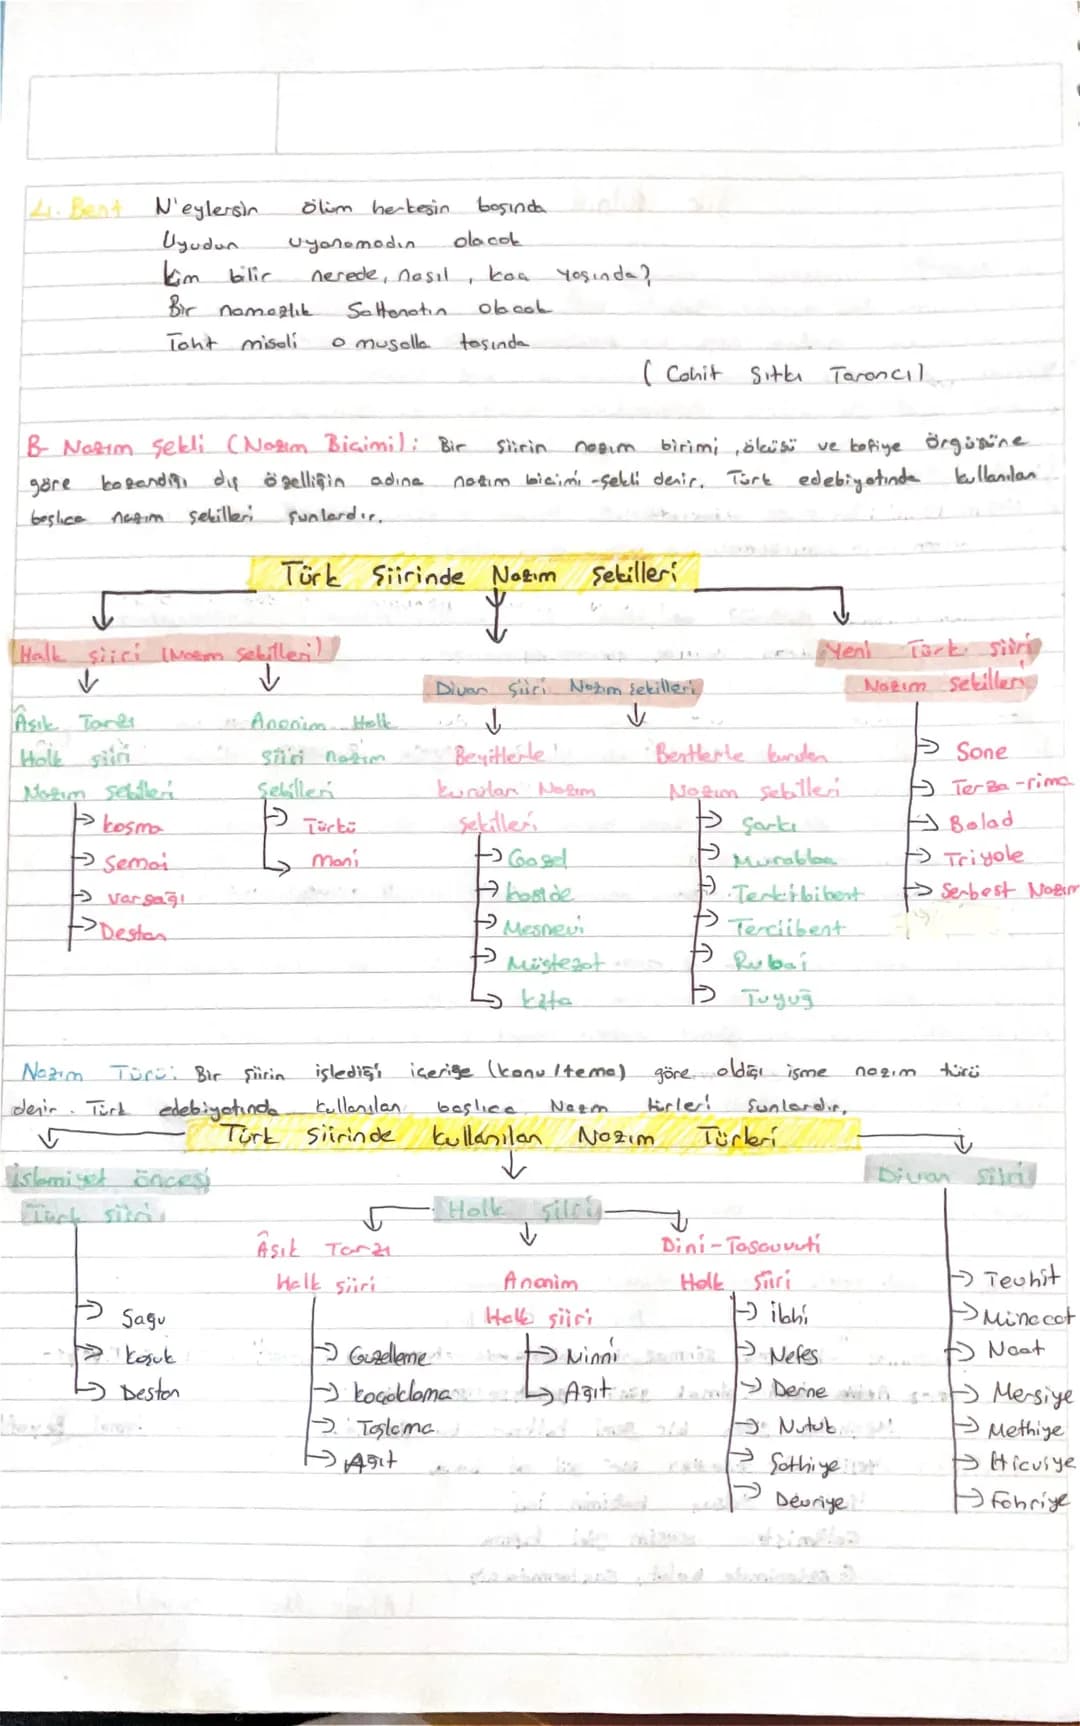 4. Bent N'eylersin ölüm herkesin başında
Uyudun uyanamadın olacak
Kim bilir nerede, nasıl, kaç yaşında?
Bir namazlık Saltanatın olacak
Taht misali o musalla taşında
(Cahit Sıtkı Tarancı)
B- Nazım şekli (Nazım Biçimi): Bir şiirin nazım birimi, ölçüsü ve kafiye örgüsüne
göre kazandığı dış özelliğin adına nazım biçimi -şekli denir. Türk edebiyatında kullanılan
başlıca nazım şekilleri şunlardır.
Türk Şiirinde Nazım Şekilleri
Halk şiiri (Nazım Şekilleri)
Âşık Tarzı
Halk şiiri
Nazım şekilleri
→ koşma
→ Semai
→ varsağı
→ Destan
Anonim Halk
şiiri nazım
Şekilleri
→ Türkü
→ mani
Divan Şiiri Nazım Şekilleri
Beyitlerle
kurulan Nazım
şekilleri
→ Gazel
→ kaside
→ Mesnevi
→ Müstezat
→ kıta
Bentlerle kurulan
Nazım şekilleri
→ Şarkı
→ Murabbaa
→ Terkibibent
→ Terciibent
→ Rubai
→ Tuyuğ
Yeni Türk şiiri
Nazım Şekilleri
→ Sone
→ Terza-rima
→ Balad
→ Triyole
→ Serbest Nazım
Nazım Türü: Bir şiirin işlediği içeriğe (konu/tema) göre aldığı isme nazım türü
denir. Türk edebiyatında kullanılan başlıca Nazım türleri Şunlardır.
Türk Şiirinde kullanılan Nazım Türleri
İslamiyet öncesi
Türk şiiri
→ Sagu
→ koşuk
→ Destan
Halk şiiri
Âşık Tarzı
Halk şiiri
→ Güzelleme
→ koçaklama
→ Taşlama
→ Ağıt
Anonim
Halk şiiri
→ Ninni
→ Ağıt
Dini-Tasavvufi
Halk şiiri
→ ilahi
→ Nefes
→ Deme
→ Nutuk
→ Şathiye
→ Devriye
Divan Şiiri
→ Tevhit
→ Münacat
→ Naat
→ Mersiye
→ Methiye
→ Hicviye
→ Fahriye